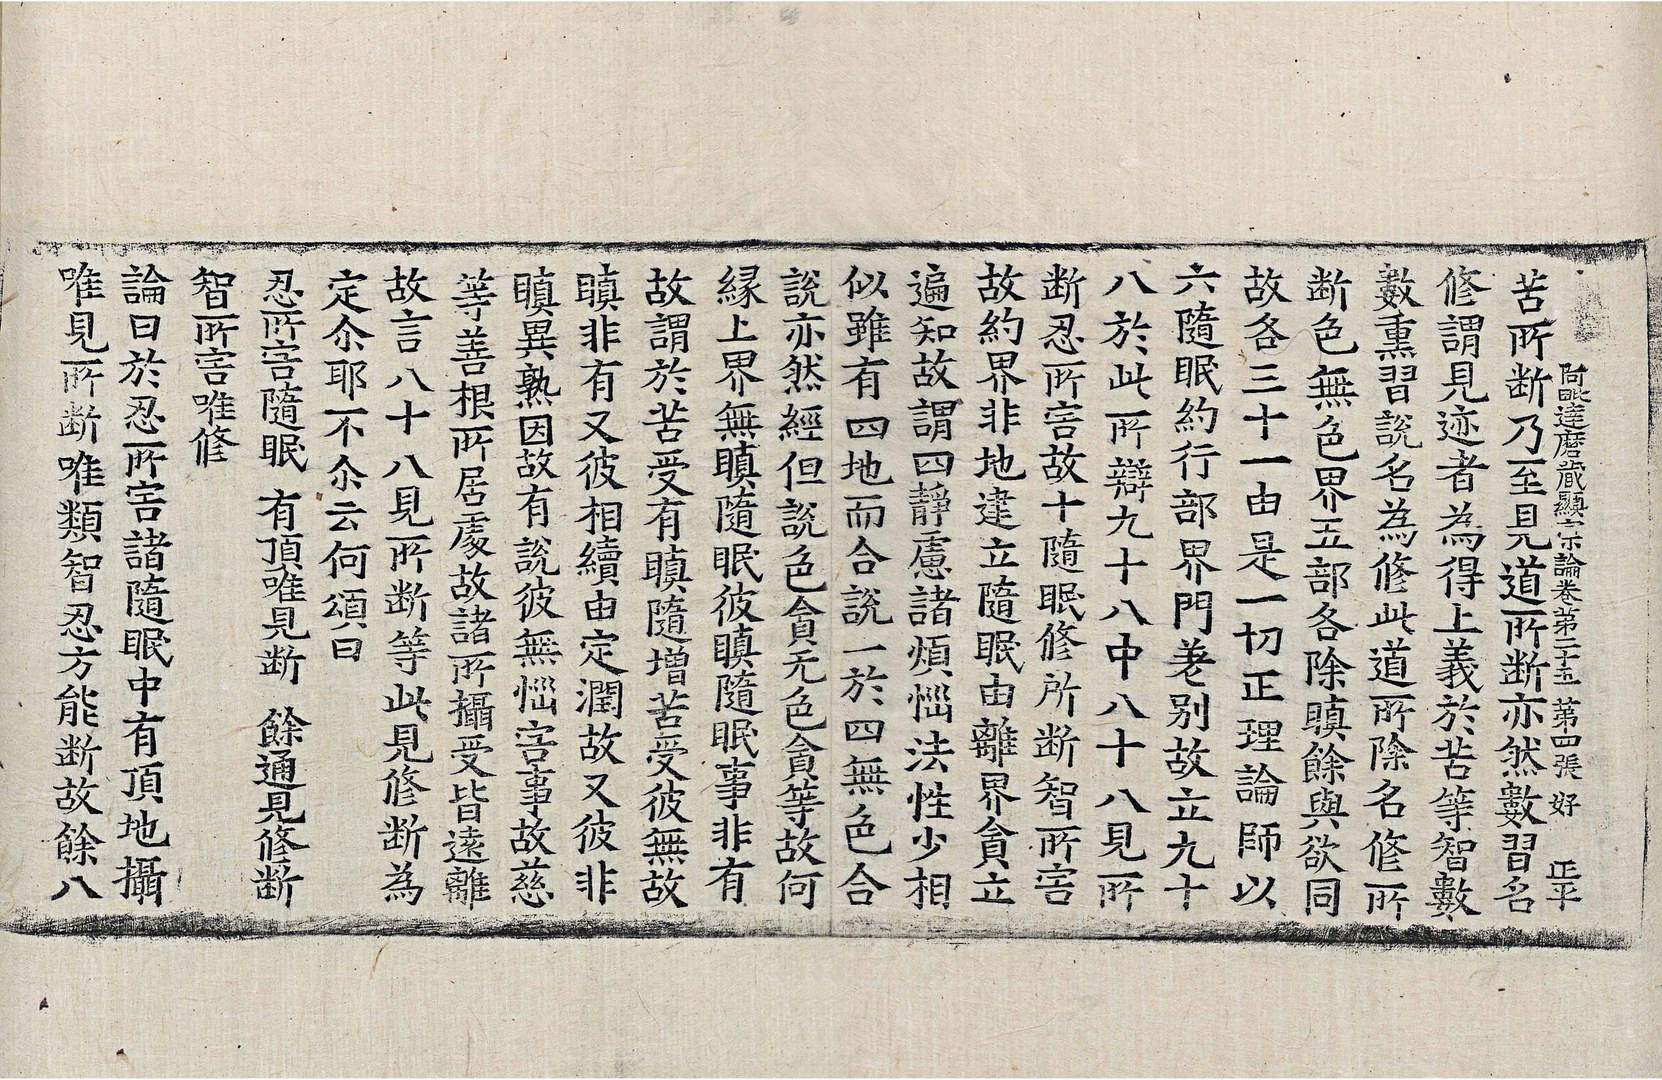 阿毗達磨藏顯宗論卷第二十五 第四張 好 正平
苦所断乃至見道所断亦然數習名
修謂見迹者為得上義於苦等智數
數熏習說名為修此道所除名修所
断色無色界五部各除瞋餘與欲同
故各三十一由是一切正理論師以
六隨眠約行部界門差別故立九十
八於此所辯九十八中八十八見所
断忍所害故十隨眠修所断智所害
故約界非地建立隨眠由離界貪立
遍知故謂四靜慮諸煩惱法性少相
似雖有四地而合說一於四無色合
說亦然經但說色貪无色貪等故何
緣上界無瞋隨眠彼瞋隨眠事非有
故謂於苦受有瞋隨增苦受彼無故
瞋非有又彼相續由定潤故又彼非
瞋異熟因故有說彼無惱害事故慈
等善根所居處故諸所攝受皆遠離
故言八十八見所断等此見修断為
定尒耶不尒云何頌曰
忍所害隨眠 有頂唯見断 餘通見修断
智所害唯修
論曰於忍所害諸隨眠中有頂地攝
唯見所断唯類智忍方能断故餘八